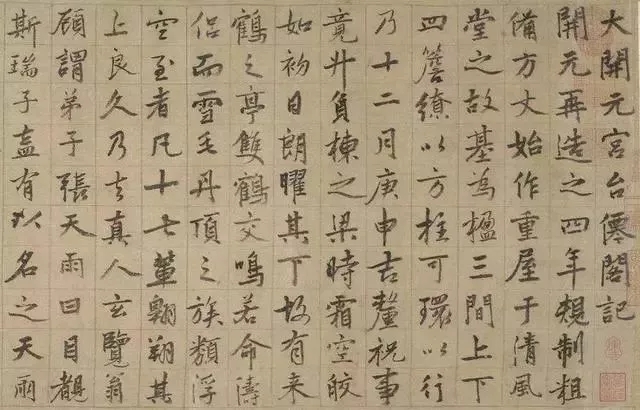 大開元宮台僊閣記
開元再造之四年規制粗
備方丈始作重屋于清風
堂之故基為楹三間上下
四簷繚以方柱可環以行
乃十二月庚申吉釐祝事
竟升負棟之梁時霜空皎
如初日朗曜其下故有来
鶴之亭雙鶴交鳴若命儔
侶而雪毛丹頂之族類浮
空至者凡十七輩翺翔其
上良久乃去真人玄覽翁
顧謂弟子張天雨曰目覩
斯瑞子盍有以名之天雨